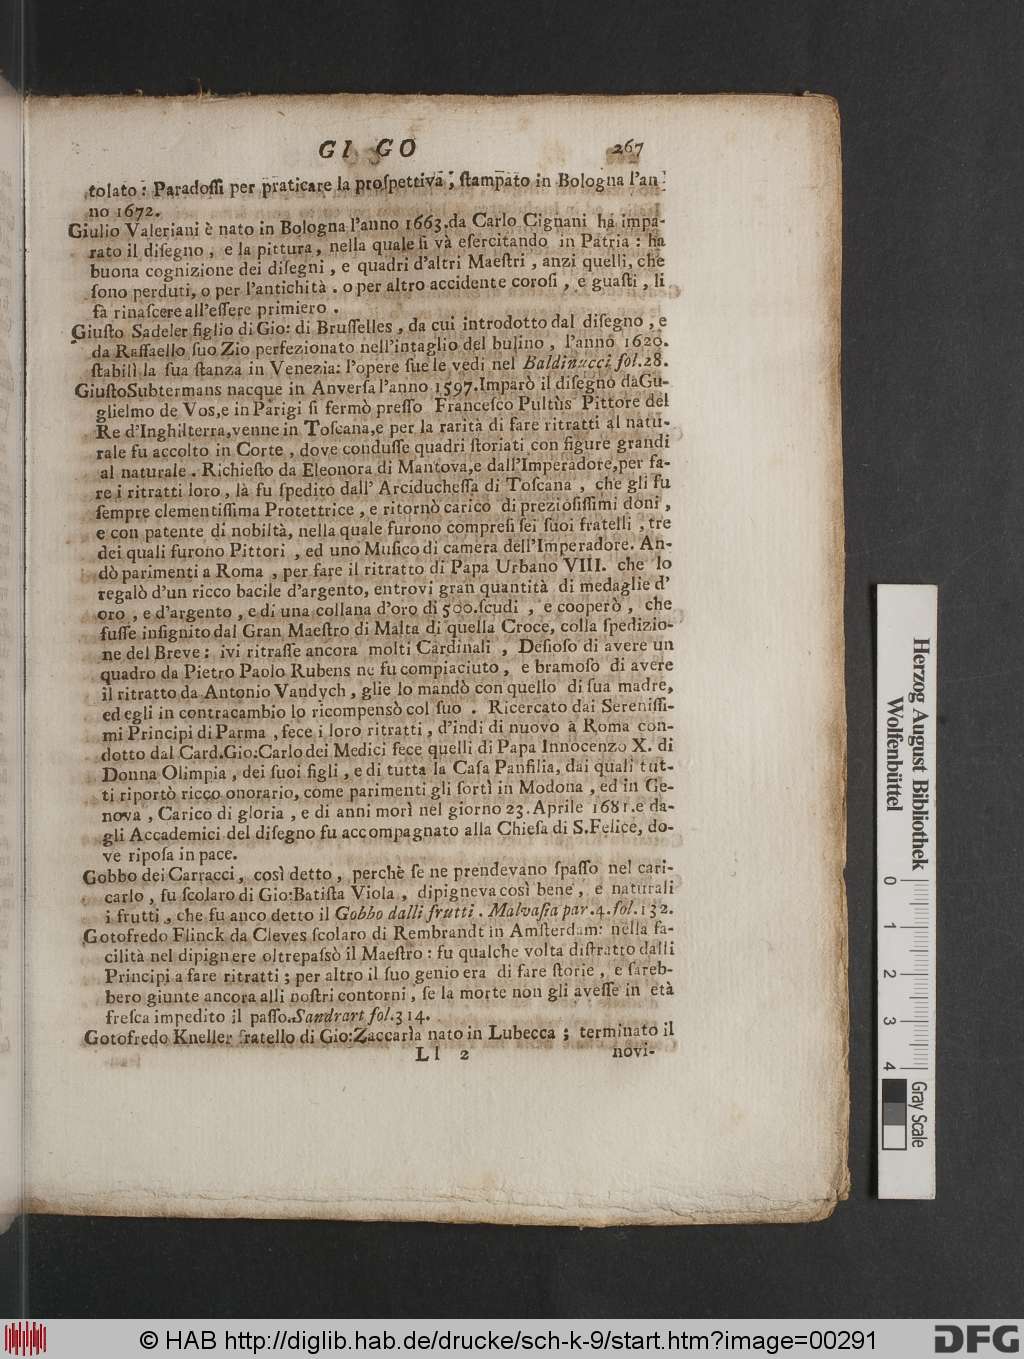 GI GO 267
tolato: Paradoſſi per praticare la proſpettiva, ſtampato in Bologna l'an-
no 1672.
Giulio Valeriani è nato in Bologna l'anno 1663. da Carlo Cignani há impa-
rato il diſegno, e la pittura, nella quale ſi và eſercitando in Patria: ha
buona cognizione dei diſegni, e quadri d'altri Maeſtri, anzi quelli, che
ſono perduti, o per l'antichità. o per altro accidente coroſi, e guaſti, li
fà rinaſcere all'eſſere primiero.
Giuſto Sadeler figlio di Gio: di Bruſſelles, da cui introdotto dal diſegno, e
da Raffaello ſuo Zio perfezionato nell'intaglio del bulino, l'anno 1620.
ſtabilì la ſua ſtanza in Venezia: l'opere ſue le vedi nel Baldinucci fol. 28.
Giuſto Subtermans nacque in Anverſa l'anno 1597. Imparò il diſegno da Gu-
glielmo de Vos, e in Parigi ſi fermò preſſo Franceſco Pultùs Pittore del
Re d'Inghilterra, venne in Toſcana, e per la rarità di fare ritratti al natu-
rale fu accolto in Corte, dove conduſſe quadri ſtoriati con figure grandi
al naturale. Richieſto da Eleonora di Mantova, e dall'Imperadore, per fa-
re i ritratti loro, là fu ſpedito dall' Arciducheſſa di Toſcana, che gli fu
ſempre clementiſſima Protettrice, e ritornò carico di prezioſiſſimi doni,
e con patente di nobiltà, nella quale furono compreſi ſei ſuoi fratelli, tre
dei quali furono Pittori, ed uno Muſico di camera dell'Imperadore. An-
dò parimenti a Roma, per fare il ritratto di Papa Urbano VIII. che lo
regalò d'un ricco bacile d'argento, entrovi gran quantità di medaglie d'
oro, e d'argento, e di una collana d'oro di 500. ſcudi, e cooperò, che
fuſſe inſignito dal Gran Maeſtro di Malta di quella Croce, colla ſpedizio-
ne del Breve: ivi ritraſſe ancora molti Cardinali, Deſioſo di avere un
quadro da Pietro Paolo Rubens ne fu compiaciuto, e bramoſo di avere
il ritratto da Antonio Vandych, glie lo mandò con quello di ſua madre,
ed egli in contracambio lo ricompensò col ſuo. Ricercato dai Sereniſſi-
mi Principi di Parma, fece i loro ritratti, d'indi di nuovo a Roma con-
dotto dal Card. Gio: Carlo dei Medici fece quelli di Papa Innocenzo X. di
Donna Olimpia, dei ſuoi figli, e di tutta la Caſa Panfilia, dai quali tut-
ti riportò ricco onorario, come parimenti gli ſortì in Modona, ed in Ge-
nova, Carico di gloria, e di anni morì nel giorno 23. Aprile 1681. e da-
gli Accademici del diſegno fu accompagnato alla Chieſa di S. Felice, do-
ve ripoſa in pace.
Gobbo dei Carracci, così detto, perchè ſe ne prendevano ſpaſſo nel cari-
carlo, fu ſcolaro di Gio: Batiſta Viola, dipigneva così bene, e naturali
i frutti, che fu anco detto il Gobbo dalli frutti. Malvaſia par. 4. fol. 132.
Gotofredo Flinck da Cleves ſcolaro di Rembrandt in Amſterdam: nella fa-
cilità nel dipignere oltrepaſsò il Maeſtro: fu qualche volta diſtratto dalli
Principi a fare ritratti; per altro il ſuo genio era di fare ſtorie, e ſareb-
bero giunte ancora alli noſtri contorni, ſe la morte non gli aveſſe in età
freſca impedito il paſſo. Sandrart fol. 314.
Gotofredo Kneller fratello di Gio: Zaccarìa nato in Lubecca; terminato il
Ll 2 novi-
Herzog August Bibliothek
Wolfenbüttel
0 1 2 3 4
Gray Scale
© HAB http://diglib.hab.de/drucke/sch-k-9/start.htm?image=00291
DFG